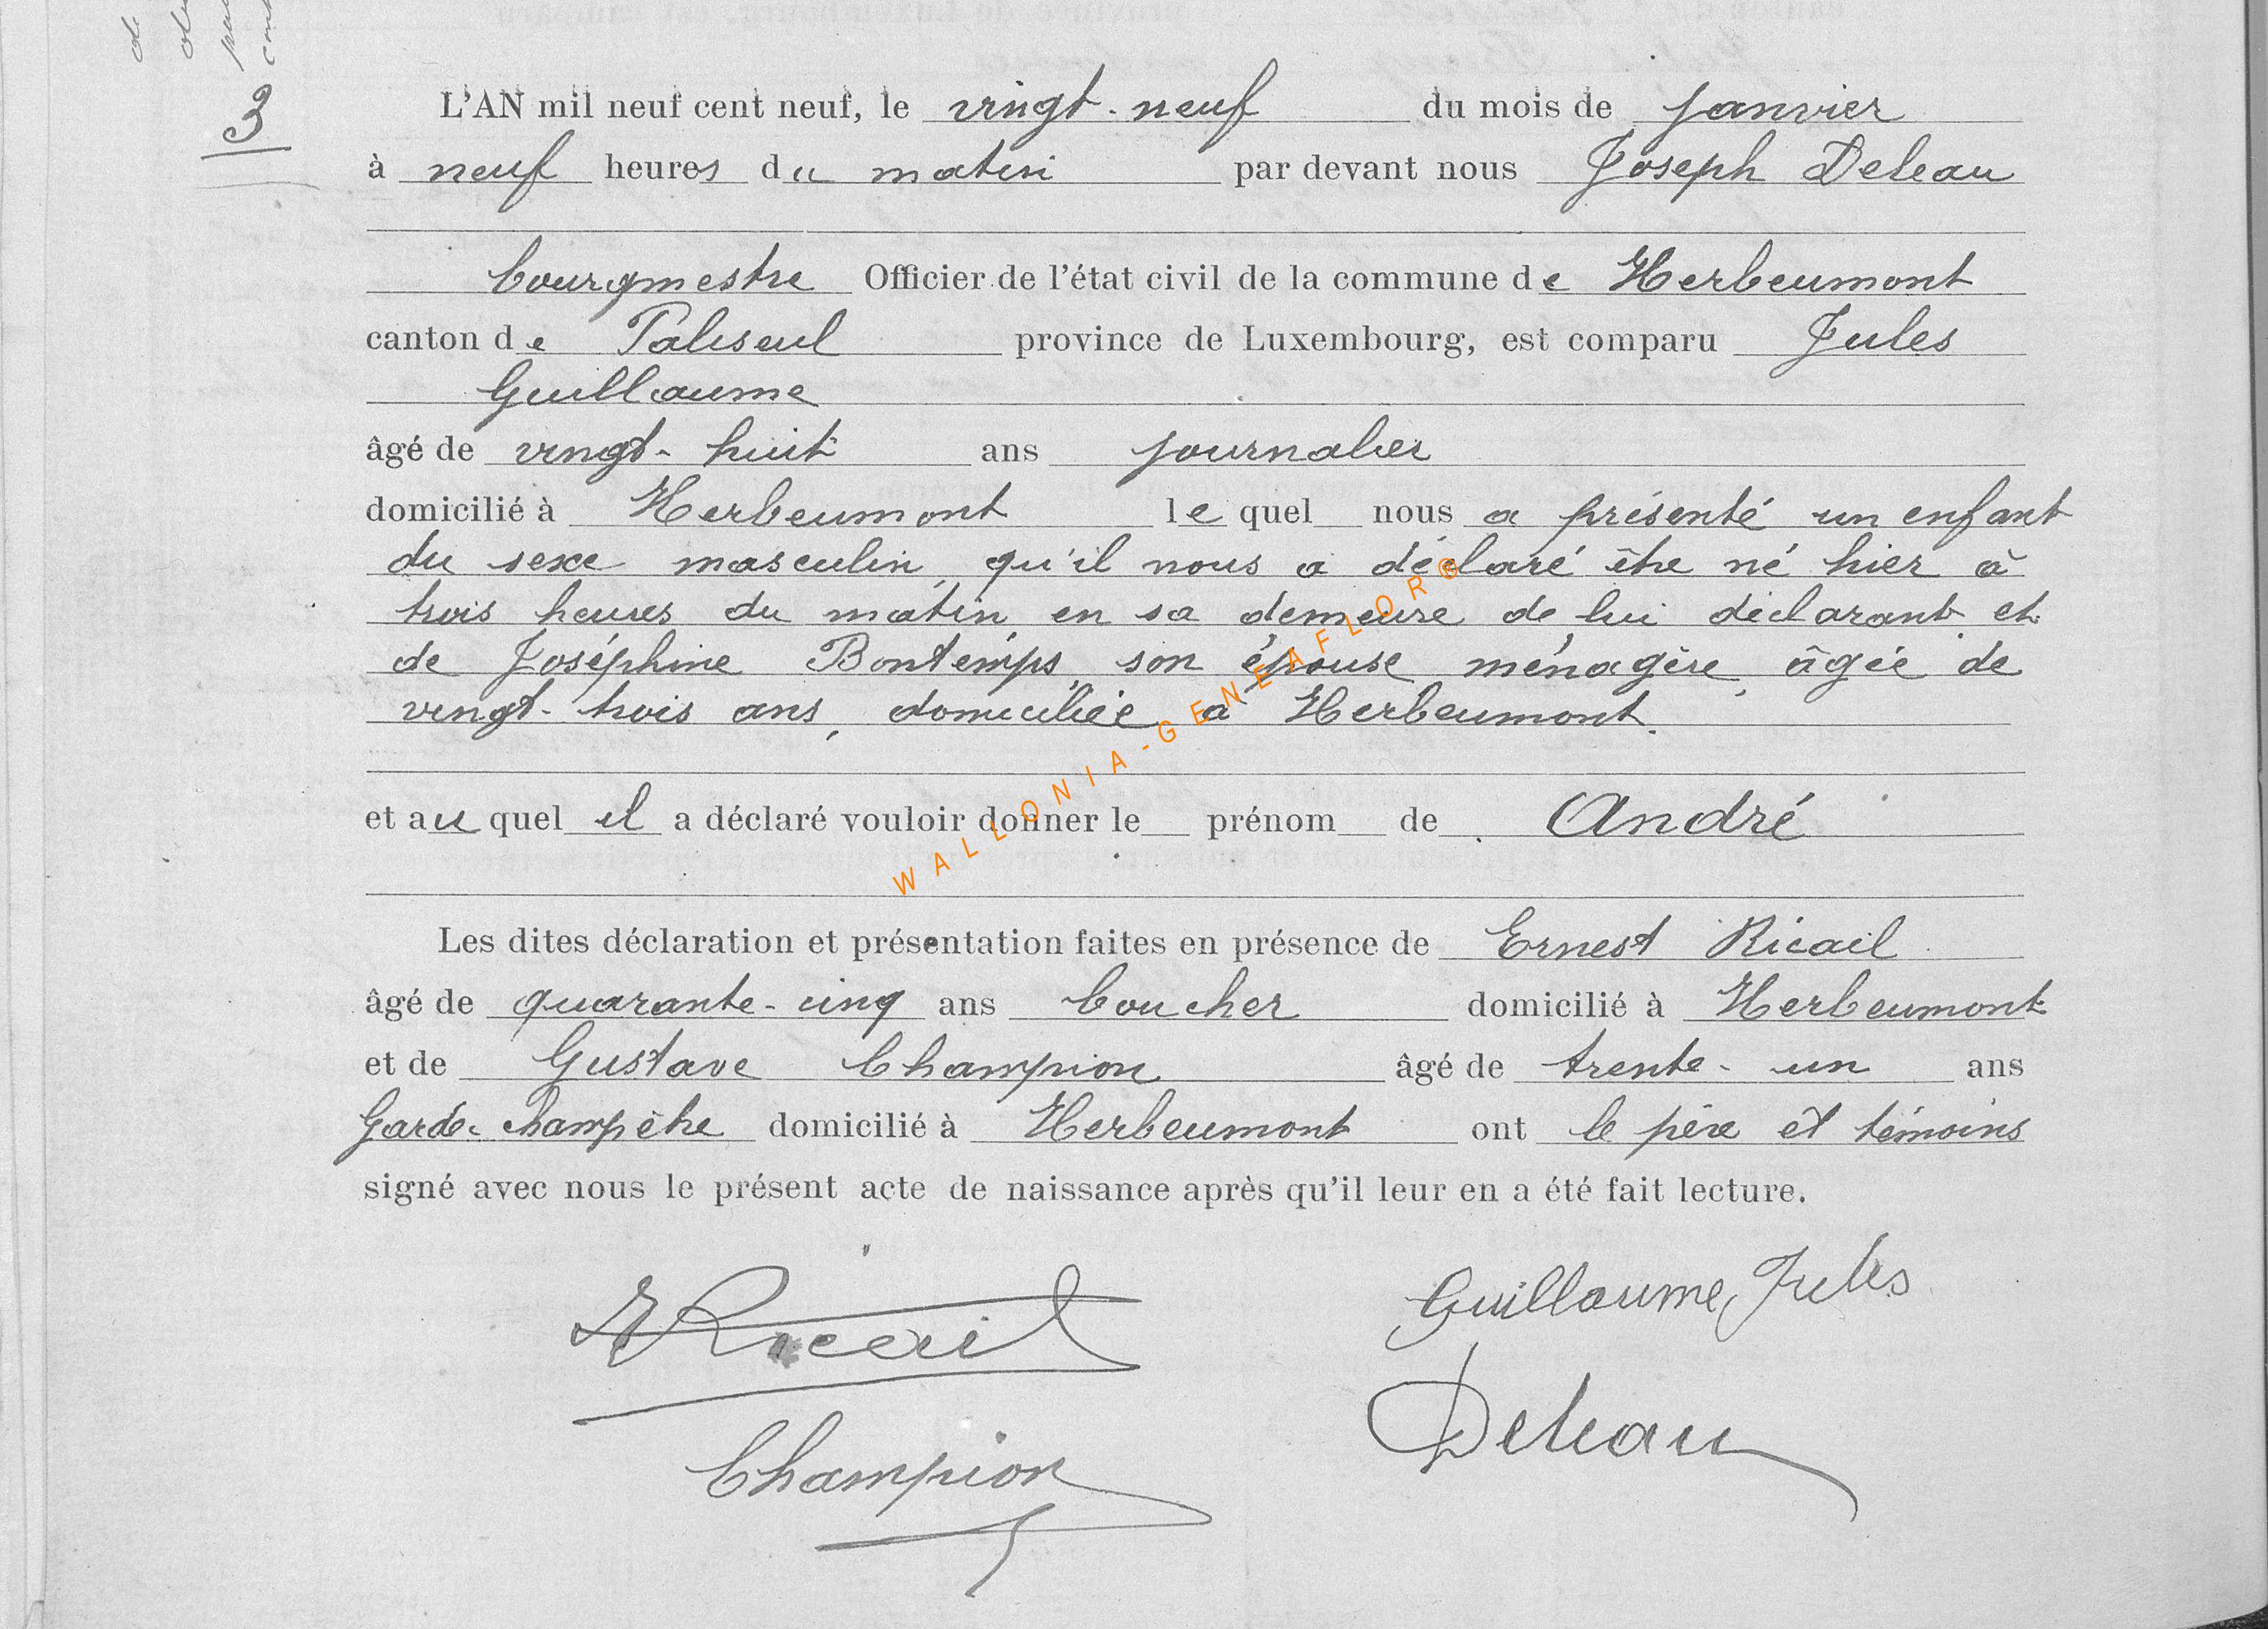 3
L'AN mil neuf cent neuf, le vingt-neuf du mois de janvier
à neuf heures du matin par devant nous Joseph Deleau
bourgmestre Officier de l'état civil de la commune de Herbeumont
canton de Paliseul province de Luxembourg, est comparu Jules
Guillaume
âgé de vingt-huit ans journalier
domicilié à Herbeumont le quel nous a présenté un enfant
du sexe masculin, qu'il nous a déclaré être né hier à
trois heures du matin en sa demeure de lui déclarant et
de Joséphine Bontemps, son épouse ménagère, âgée de
vingt-trois ans, domiciliée à Herbeumont.
et au quel il a déclaré vouloir donner le prénom de André
Les dites déclaration et présentation faites en présence de Ernest Ricail
âgé de quarante-cinq ans boucher domicilié à Herbeumont
et de Gustave Champion âgé de trente-un ans
Garde-champêtre domicilié à Herbeumont ont le père et témoins
signé avec nous le présent acte de naissance après qu'il leur en a été fait lecture.
Guillaume Jules
Ricail
Deleau
Champion
WALLONIA-GENEAFLORE